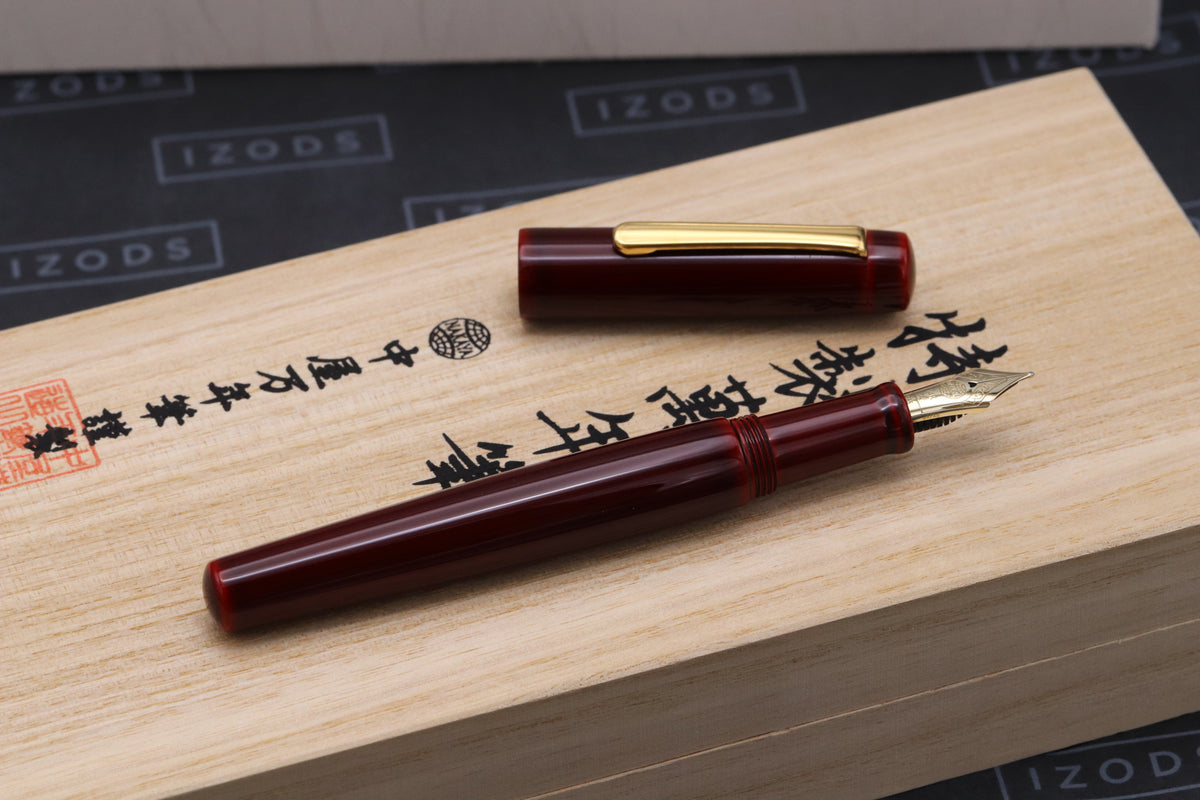 IZODS
IZODS
IZODS
IZODS
IZODS
特製萬年筆
NAKAYA
中屋万年筆謹製
IZODS